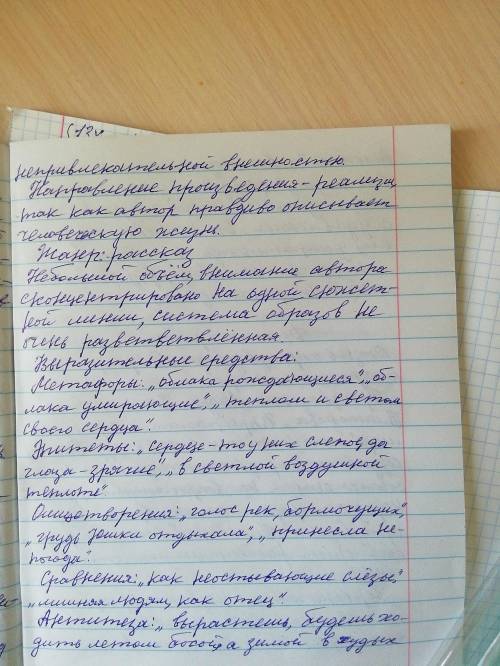 непривлекательной внешностью.
Направление произведения - реализм
так как автор правдиво описывает
человескую жизнь.
Жанр: рассказ
Небольшой объём, внимание автора
сконцентрировано на одной сюжет-
ной линии, система образов не
очень разветветвлённая.
Выразительные средства:
Метафоры: „облака рождающиеся", „об-
лака умирающие", „теплом и светом
своего сердца".
Эпитеты: „сердце-то у них слепое, да
глаза - зрячие", „в светлой воздушной
теплоте"
Олицетворения: „голос рек, бормочущих",
„грудь Юшки отдыхала", „принесла не-
погода".
Сравнения: „как неостывающие слёзы"
„лишняя людям, как отец".
Антитеза: „вырастешь, будешь хо-
дить летом босой, а зимой в худых